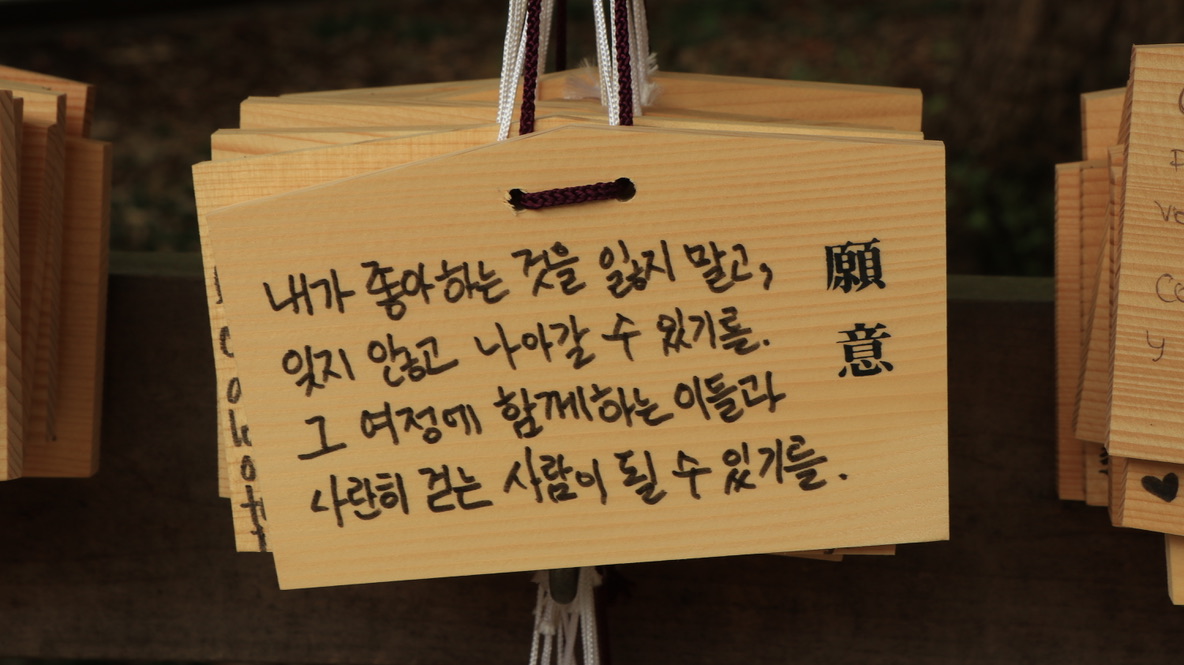 내가 좋아하는 것을 잃지 말고,
잊지 않고 나아갈 수 있기를.
그 여정에 함께하는 이들과
나란히 걷는 사람이 될 수 있기를.
願意